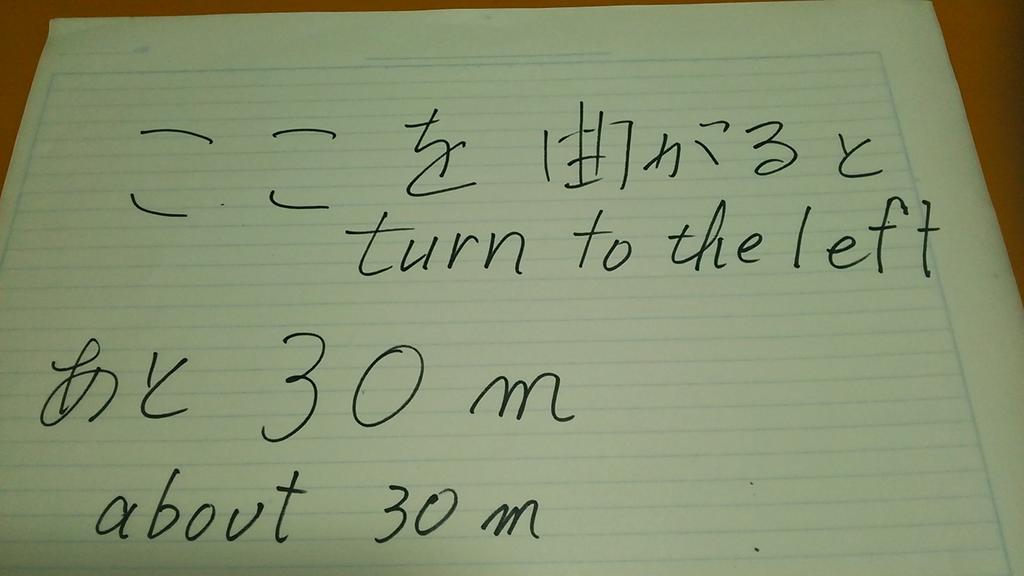 ここを曲がると
turn to the left
あと 30 m
about 30 m